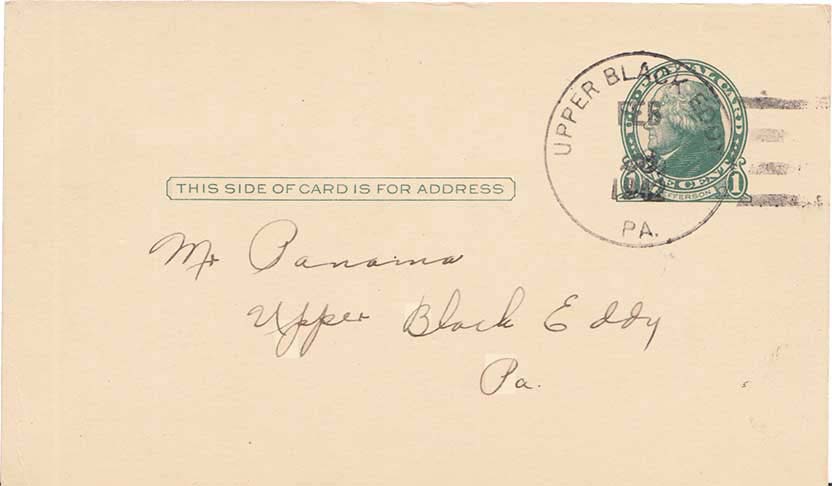 UPPER BLACK EDDY
FEB
3
1942
PA.
CARD
1
JEFFERSON
THIS SIDE OF CARD IS FOR ADDRESS
Mr Panama
Upper Black Eddy
Pa.